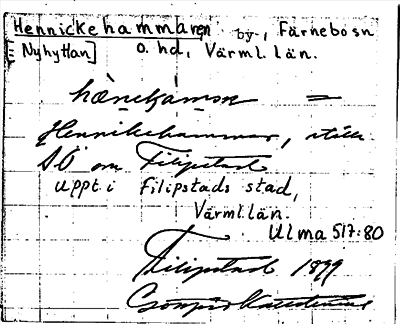 Hennickehammaren by, Färnebo sn
[= Nyhyttan] o. hd, Värml. län.
=
Hennikehammar,
SÖ om Filipstad
uppt. i Filipstads stad,
Värml. län.
Ulma 517:80
Filipstad 1899